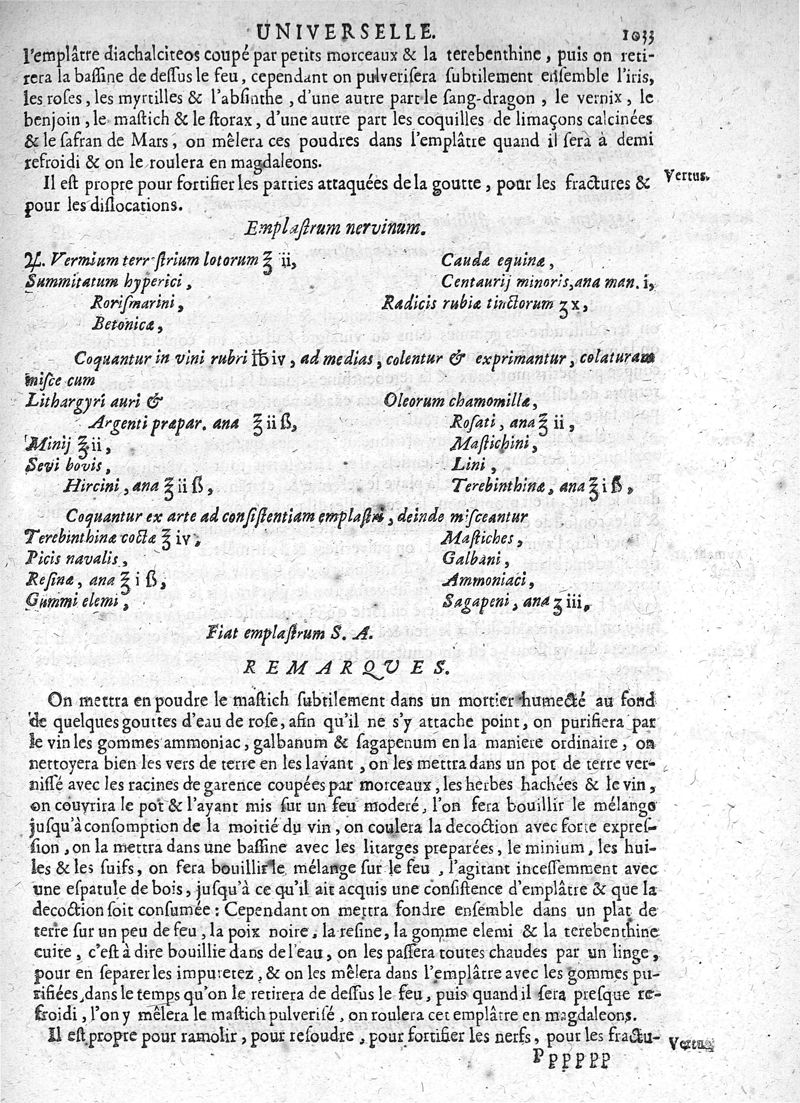 UNIVERSELLE. 1033
l'emplâtre diachalciteos coupé par petits morceaux & la terebenthine, puis on reti-
rera la baſſine de deſſus le feu, cependant on pulveriſera ſubtilement enſemble l'iris,
les roſes, les myrtilles & l'abſinthe, d'une autre part le ſang-dragon, le vernix, le
benjoin, le maſtich & le ſtorax, d'une autre part les coquilles de limaçons calcinées
& le ſafran de Mars, on mêlera ces poudres dans l'emplâtre quand il ſera à demi
refroidi & on le roulera en magdaleons.
Il eſt propre pour fortifier les parties attaquées de la goutte, pour les fractures & Vertus.
pour les diſlocations.
Emplaſtrum nervinum.
℞. Vermium terrſtrium lotorum ℥ ii,
Summitatum hyperici,
Roriſmarini,
Betonicæ,
Caudæ equinæ,
Centaurij minoris, ana man. i,
Radicis rubiæ tinctorum ʒx,
Coquantur in vini rubri ℔iv, ad medias, colentur & exprimantur, colaturam
miſce cum
Lithargyri auri &
Argenti præpar. ana ℥ii ß,
Minij ℥ii,
Sevi bovis,
Hircini, ana ℥ii ß,
Oleorum chamomillæ,
Roſati, ana ℥ ii,
Maſtichini,
Lini,
Terebinthinæ, ana ℥i ß,
Coquantur ex arte ad conſiſtentiam emplaſtri, deinde miſceantur
Terebinthinæ coctæ ℥iv,
Picis navalis,
Reſinæ, ana ℥ i ß,
Gummi elemi,
Maſtiches,
Galbani,
Ammoniaci,
Sagapeni, ana ʒiii,
Fiat emplaſtrum S. A.
REMARQUES.
On mettra en poudre le maſtich ſubtilement dans un mortier humecté au fond
de quelques gouttes d'eau de roſe, afin qu'il ne s'y attache point, on purifiera par
le vin les gommes ammoniac, galbanum & ſagapenum en la maniere ordinaire, on
nettoyera bien les vers de terre en les lavant, on les mettra dans un pot de terre ver-
niſſé avec les racines de garence coupées par morceaux, les herbes hachées & le vin,
on couvrira le pot & l'ayant mis ſur un feu moderé, l'on fera bouillir le mélange
juſqu'à conſomption de la moitié du vin, on coulera la decoction avec forte expreſ-
ſion, on la mettra dans une baſſine avec les litarges preparées, le minium, les hui-
les & les ſuifs, on fera bouillir le mélange ſur le feu, l'agitant inceſſemment avec
une eſpatule de bois, juſqu'à ce qu'il ait acquis une conſiſtence d'emplâtre & que la
decoction ſoit conſumée: Cependant on mettra fondre enſemble dans un plat de
terre ſur un peu de feu, la poix noire, la reſine, la gomme elemi & la terebenthine
cuite, c'eſt à dire bouillie dans de l'eau, on les paſſera toutes chaudes par un linge,
pour en ſeparer les impuretez, & on les mêlera dans l'emplâtre avec les gommes pu-
rifiées, dans le temps qu'on le retirera de deſſus le feu, puis quand il ſera preſque re-
froidi, l'on y mêlera le maſtich pulveriſé, on roulera cet emplâtre en magdaleons.
Il eſt propre pour ramolir, pour reſoudre, pour fortifier les nerfs, pour les fractu- Vertus
PPPPPP